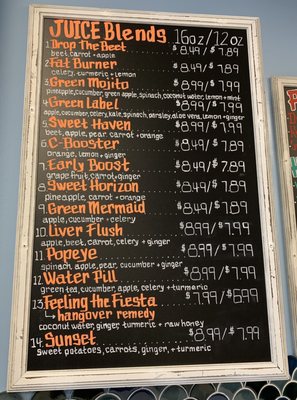 JUICE Blends 16oz/12oz
1. Drop The Beet $8.49/$7.89
beet, carrot + apple
2. Fat Burner $8.49/$7.89
celery, turmeric + lemon
3. Green Mojito $8.99/$7.99
pineapple, cucumber, green apple, spinach, coconut water, lemon + mint
4. Green Label $8.99/$7.99
apple, cucumber, celery, kale, spinach, parsley, aloe vera, lemon + ginger
5. Sweet Haven $8.99/$7.99
beet, apple, pear, carrot + orange
6. C-Booster $8.49/$7.89
orange, lemon + ginger
7. Early Boost $8.49/$7.89
grape fruit, carrot + ginger
8. Sweet Horizon $8.49/$7.89
pineapple, carrot + orange
9. Green Mermaid $8.49/$7.89
apple, cucumber + celery
10. Liver Flush $8.99/$7.99
apple, beet, carrot, celery + ginger
11. Popeye $8.99/$7.99
spinach, apple, pear, cucumber + ginger
12. Water Pill $8.99/$7.99
green tea, cucumber, apple, celery + turmeric
13. Feeling the Fiesta $7.99/$6.99
↳ hangover remedy
coconut water, ginger, turmeric + raw honey
14. Sunset $8.99/$7.99
Sweet potatoes, carrots, ginger, + turmeric